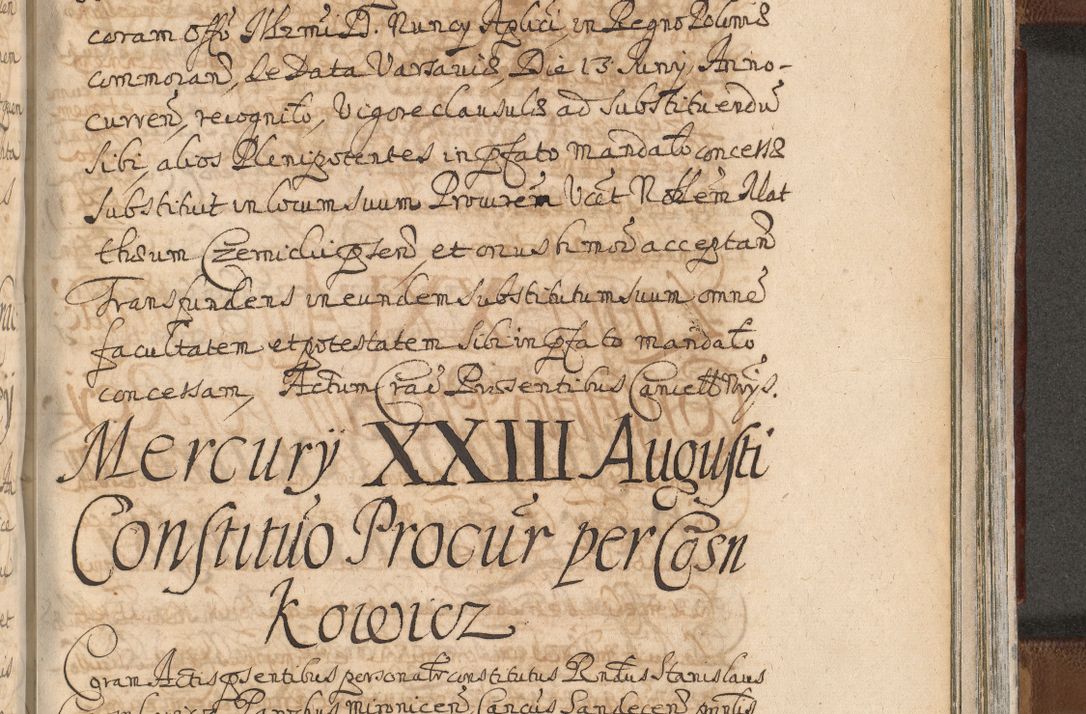 coram Offo Illrmi D. Nuncy Aplici, in Regno Poloniæ
commoran, de Data Varsaviæ, Die 13 Juny, Anno-
curren, recognito, Vigore clausulæ ad substituendũ
sibi, alios Plenipotentes in pfato mandato concessæ
substituit in locum suum Procurem Vcet Noblem Mat
thæum et onus hmoi acceptan
Transfundens in eundem substitutum suum, omne
facultatem et potestatem sibi in pfato mandato
concessam, Actum Crac Præsentibus
Mercurÿ XXIII Augusti
Constitutio Procur per Cosn
kowicz
Coram Actis psentibus personalr constitutus Rndus Stanislaus
Cancus Sandecen